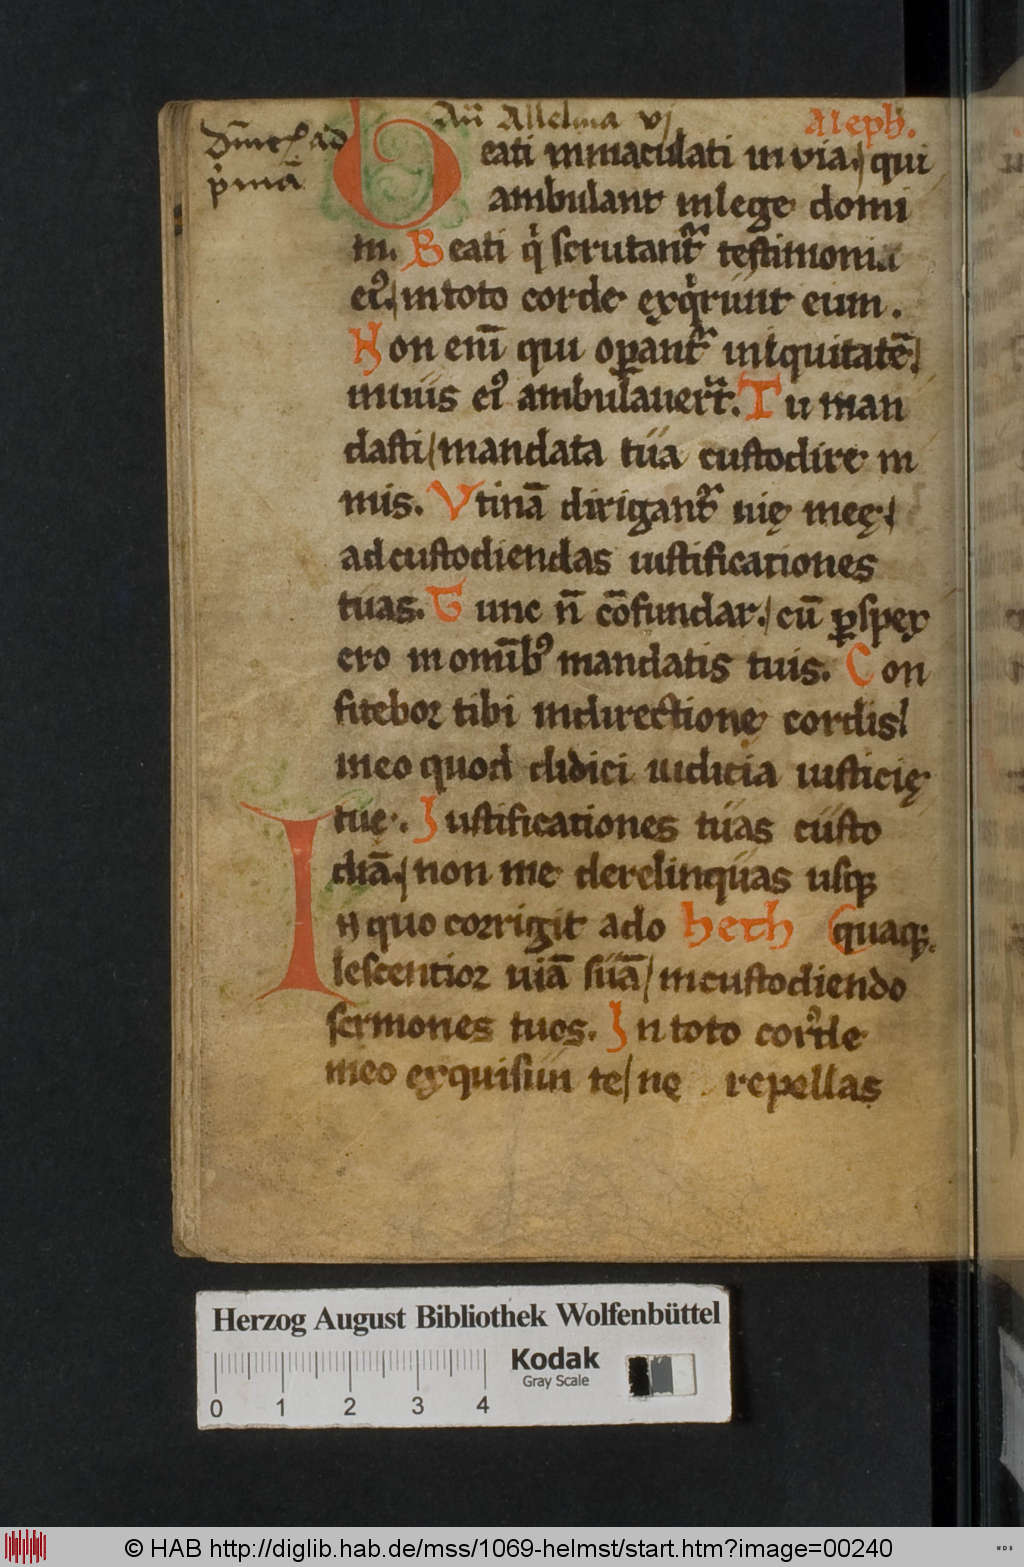 Añ Alleluia vj
Aleph.
Beati inmaculati in via./ qui
ambulant inlege domi
ni. Beati q̇ scrutant᷑ testimonia
ei᷒./ intoto corde exq̇runt eum.
Non eni̅ qui oꝑant᷑ iniquitate̅./
inuiis ei᷒ ambulauer̅t. Tu man
dasti/ mandata tua custodire ni
mis. Vtina̅ dirigant᷑ uię meę./
adcustodiendas iustificationes
tuas. Tunc n̅ co̅fundar./ cu̅ ꝑspex
ero in omi̅b᷒ mandatis tuis. Con
fitebor tibi indirectione cordis/
meo quod didici iudicia iusticię
tuę. Iustificationes tuas custo
dia̅./ non me derelinquas usqꝫ
In quo corrigit ado heth quaqꝫ.
lescentior uia̅ sua̅/ incustodiendo
sermones tuos. In toto corde
meo exquisiui te/ nę repellas
Herzog August Bibliothek Wolfenbüttel
Kodak
Gray Scale
0 1 2 3 4
© HAB http://diglib.hab.de/mss/1069-helmst/start.htm?image=00240